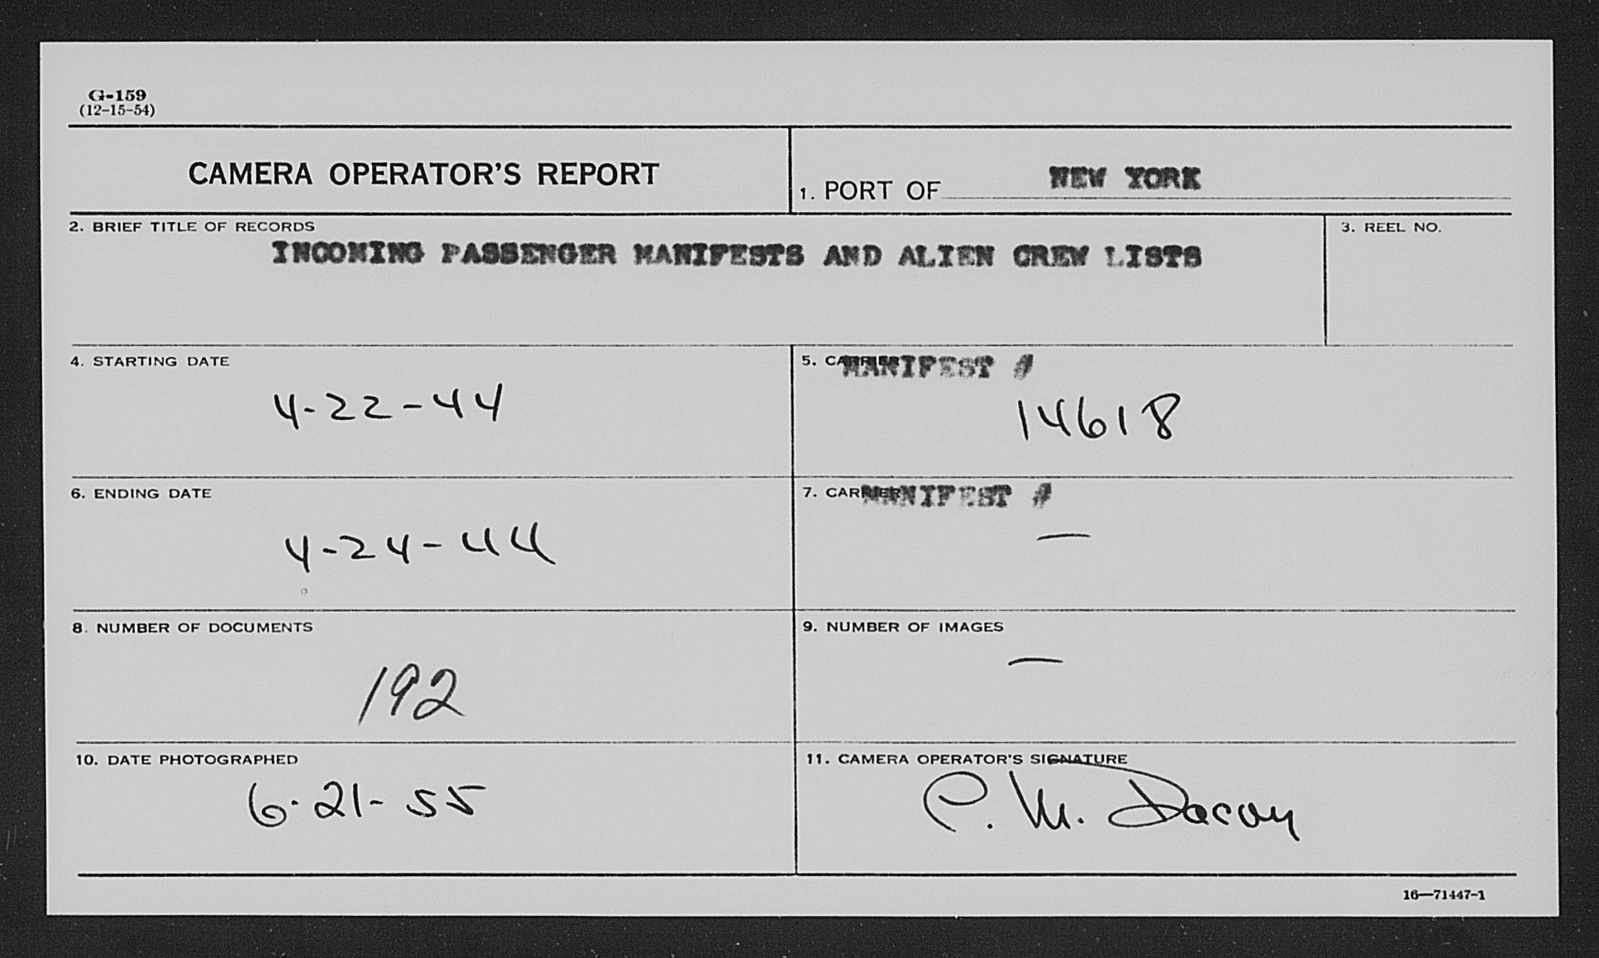 G-159
(12-15-54)
CAMERA OPERATOR'S REPORT
1. PORT OF NEW YORK
2. BRIEF TITLE OF RECORDS
INCOMING PASSENGER MANIFESTS AND ALIEN CREW LISTS
3. REEL NO.
4. STARTING DATE
4-22-44
5. CARRIER MANIFEST #
14618
6. ENDING DATE
4-24-44
7. CARRIER MANIFEST #
—
8. NUMBER OF DOCUMENTS
192
9. NUMBER OF IMAGES
—
10. DATE PHOTOGRAPHED
6-21-55
11. CAMERA OPERATOR'S SIGNATURE
C. M.
16—71447-1